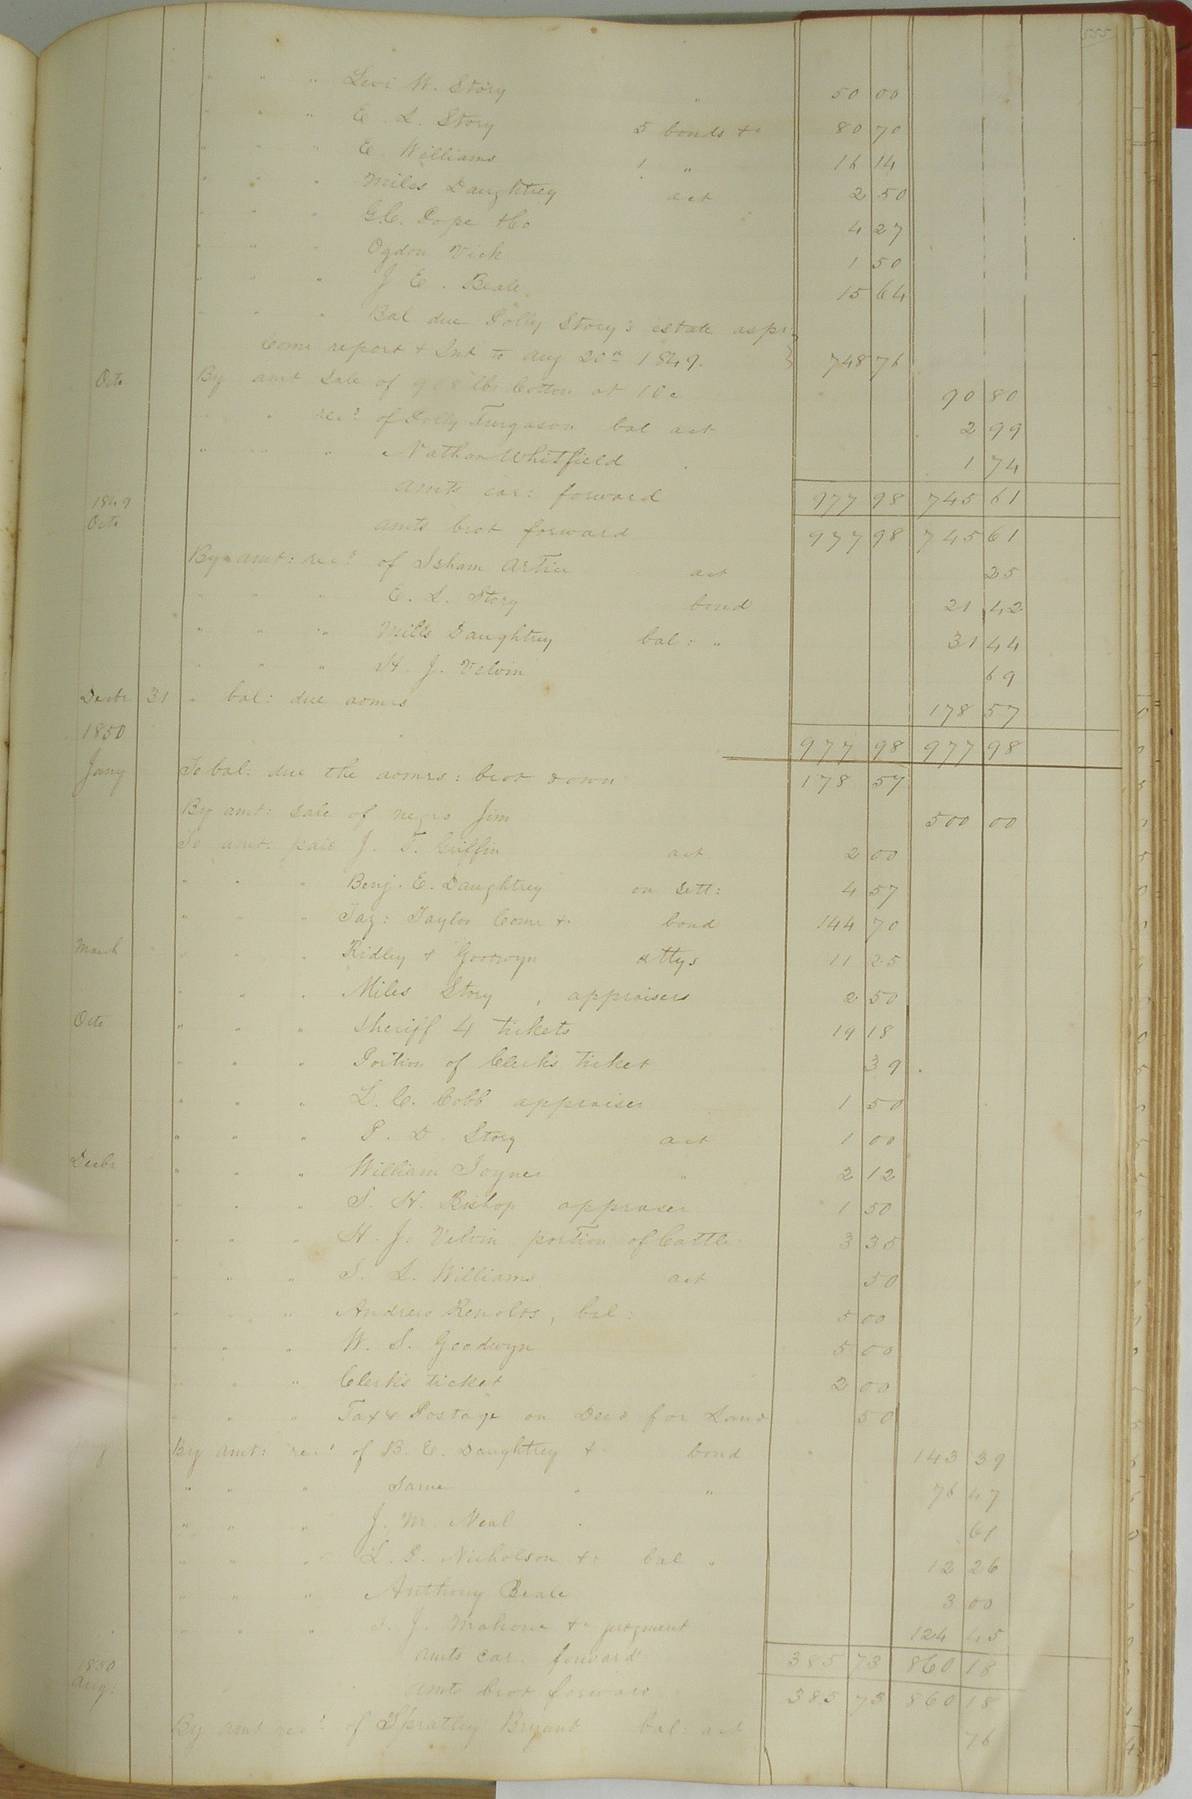 555
" " " Levi W. Story " 50 00
" " " E. L. Story 5 bonds &c 80 70
" " " E. Williams 1 " 16 14
" " " Miles Daughtrey act 2 50
" " " G.C. Pope & Co 4 27
" " " Ogdon Vick 1 50
" " " J E. Beale 15 64
" " " Bal due Polly Story's estate as pr
Coms report & Int to Aug 20th 1849. 748 76
Octo By amt Sale of 908 lbs Cotton at 10c 90 80
" " recd of Polly Furgason bal act 2 99
" " " Nathan Whitfield 1 74
amts car: forward 977 98 745 61
1849
Octo amts brot forward 977 98 745 61
By amt: recd of Isham Artice act 25
" " " E. L. Story bond 21 42
" " " Mills Daughtrey bal: " 31 44
" " " H. J. Velvin 69
Decbr 31 " bal: due admrs 178 57
1850 977 98 977 98
Jany To bal: due the admrs: brot down 178 57
By amt: sale of negro Jim 500 00
To amt: paid J. T. Griffin act 2 00
" " " Benj. E. Daughtrey on Sett: 4 57
" " " Taz: Taylor Comr &c bond 144 70
March " " " Ridley & Goodwyn attys 11 25
" " " Miles Story, appraisers 2 50
Octo " " " Sheriff 4 tickets 19 18
" " " Portion of Clerks ticket 39
" " " L. C. Cobb appraiser 1 50
" " " P. D. Story act 1 00
Decbr " " " William Joyner " 2 12
" " " S. H. Bishop appraser 1 50
" " " H. J. Velvin portion of Cattle 3 35
" " " S. L. Williams act 50
" " " Andrew Renolds, bal: 5 00
" " " W. S. Goodwyn 5 00
" " " Clerks ticket 2 00
" " " Tax & Postage on Deed for Land 50
By amt: recd of B. E. Daughtrey & bond 143 39
" " " Same " " 76 47
" " " J. M. Neal 61
" " " L. G. Nicholson &c bal " 12 26
" " " Anthony Beale 3 00
" " " J. Mahone &c judgment 124 45
amts car: forward 385 73 860 18
1850
Aug: amts brot forward 385 73 860 18
By amt recd of Spratley Bryant bal: act 76